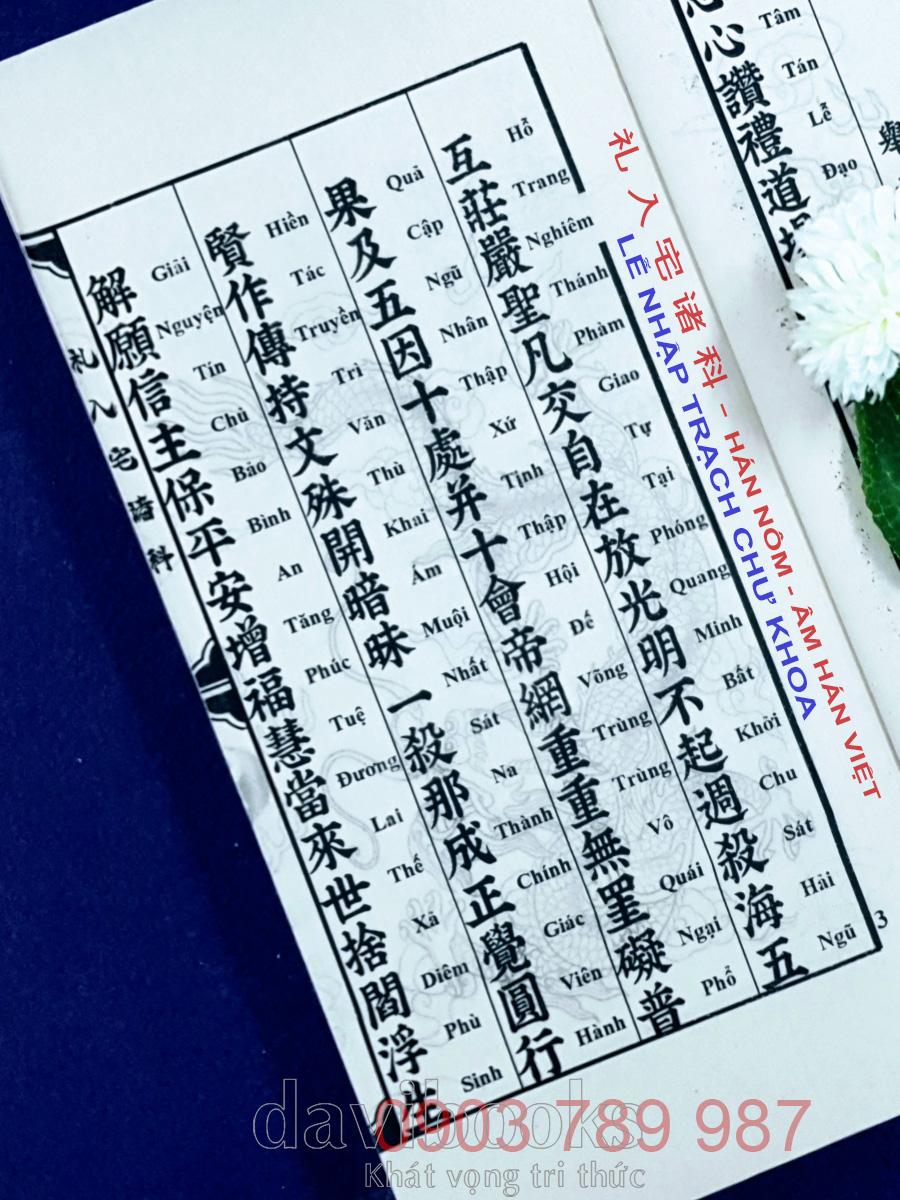 心讚禮道
Tâm Tán Lễ Đạo
互莊嚴聖凡交自在放光明不起週殺海五
Hỗ Trang Nghiêm Thánh Phàm Giao Tự Tại Phóng Quang Minh Bất Khởi Chu Sát Hải Ngũ
果及五因十處并十會帝網重重無罣礙普
Quả Cập Ngũ Nhân Thập Xứ Tịnh Thập Hội Đế Võng Trùng Trùng Vô Quái Ngại Phổ
賢作傳持文殊開暗昧一殺那成正覺圓行
Hiền Tác Truyền Trì Văn Thù Khai Ám Muội Nhất Sát Na Thành Chính Giác Viên Hành
解願信主保平安增福慧當來世捨閻浮生
Giải Nguyện Tín Chủ Bảo Bình An Tăng Phúc Tuệ Đương Lai Thế Xả Diêm Phù Sinh
礼入宅諸科
3
礼入宅诸科 - HÁN NÔM - ÂM HÁN VIỆT
LỄ NHẬP TRẠCH CHƯ KHOA
davibooks
0903 789 987
Khát vọng tri thức